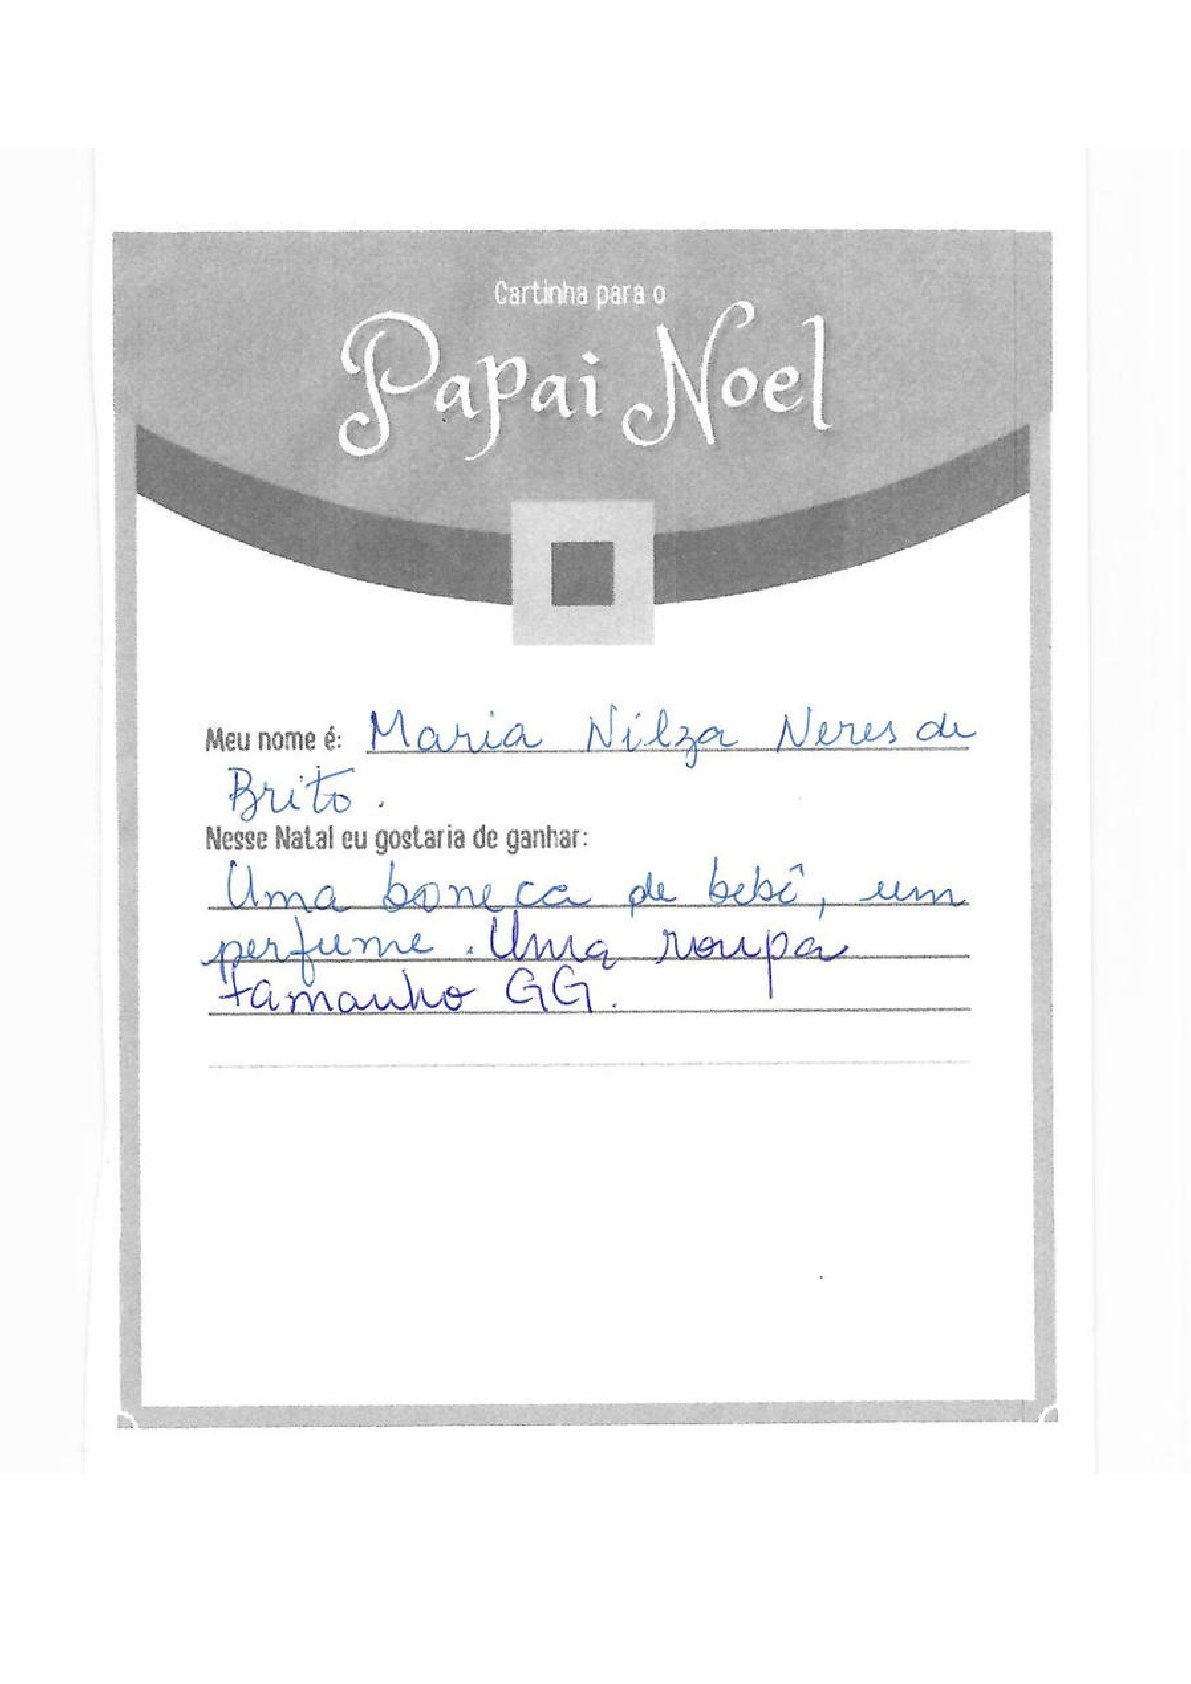 Cartinha para o
Papai Noel
Meu nome é: Maria Nilza Neres de
Brito.
Nesse Natal eu gostaria de ganhar:
Uma boneca de bebê, um
perfume. Uma roupa
tamanho GG.